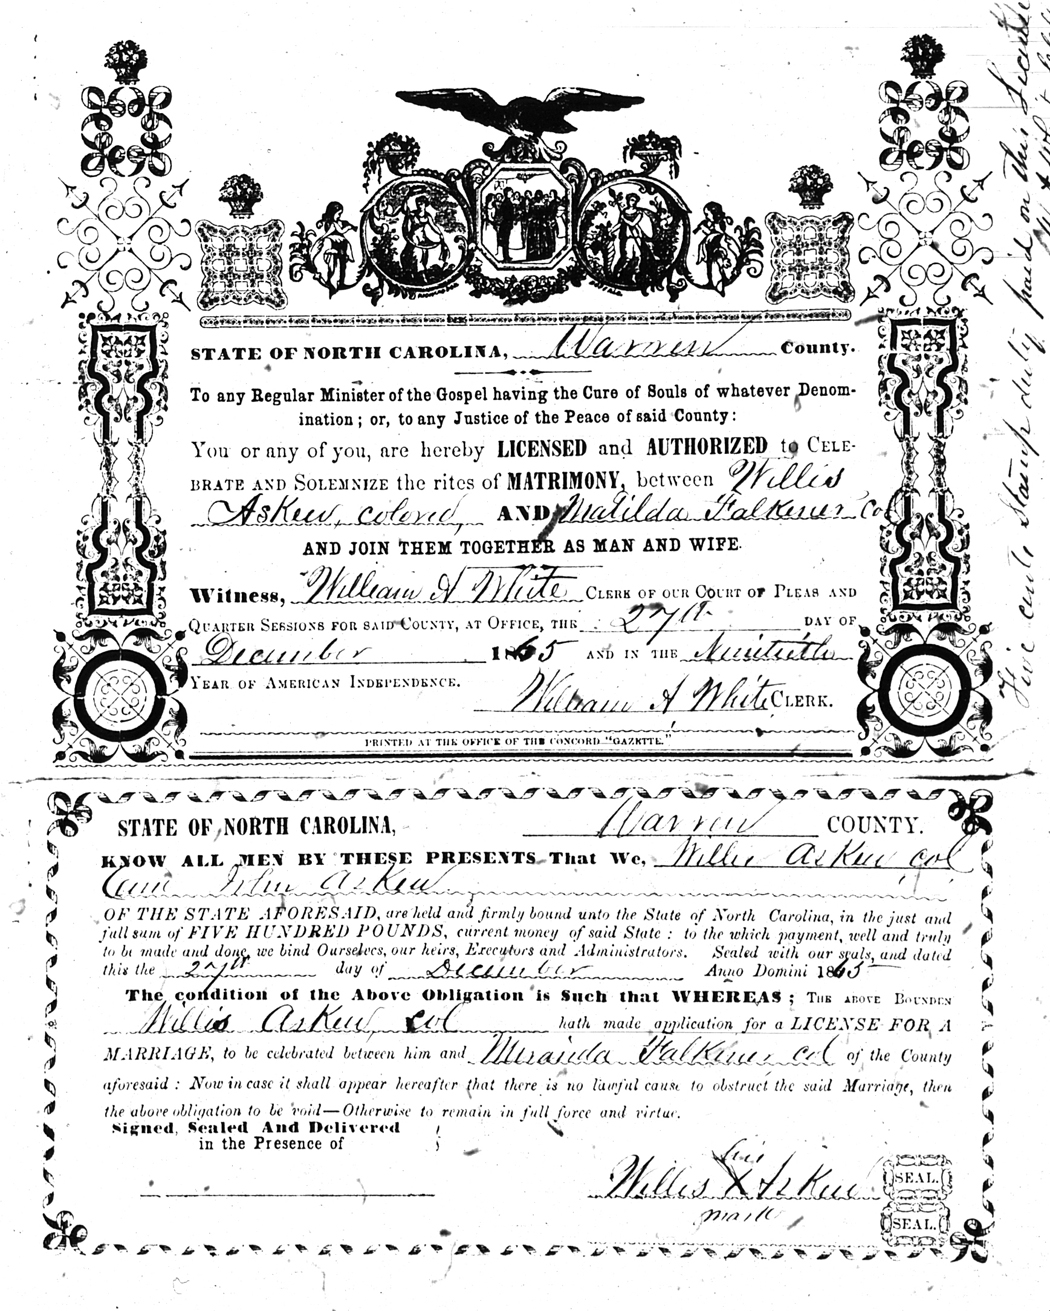 STATE OF NORTH CAROLINA, Warren County.
To any Regular Minister of the Gospel having the Cure of Souls of whatever Denom-
ination; or, to any Justice of the Peace of said County:
You or any of you, are hereby LICENSED and AUTHORIZED to CELE-
BRATE AND SOLEMNIZE the rites of MATRIMONY, between Willis
Askew, colored, AND Matilda Falkener, Col
AND JOIN THEM TOGETHER AS MAN AND WIFE.
Witness, William A White CLERK OF OUR COURT OF PLEAS AND
QUARTER SESSIONS FOR SAID COUNTY, AT OFFICE, THE 27th DAY OF
December 1865 AND IN THE Ninetieth
YEAR OF AMERICAN INDEPENDENCE.
William A White CLERK.
PRINTED AT THE OFFICE OF THE CONCORD "GAZETTE."
Five cents Stamp duty paid on this License
STATE OF NORTH CAROLINA, Warren COUNTY.
KNOW ALL MEN BY THESE PRESENTS That We, Willis Askew col
John Askew
OF THE STATE AFORESAID, are held and firmly bound unto the State of North Carolina, in the just and
full sum of FIVE HUNDRED POUNDS, current money of said State: to the which payment, well and truly
to be made and done, we bind Ourselves, our heirs, Executors and Administrators. Sealed with our seals, and dated
this the 27th day of December Anno Domini 1865
The condition of the Above Obligation is Such that WHEREAS; THE ABOVE BOUNDEN
Willis Askew, col hath made application for a LICENSE FOR A
MARRIAGE, to be celebrated between him and Miranda Falkener col of the County
aforesaid: Now in case it shall appear hereafter that there is no lawful cause to obstruct the said Marriage, then
the above obligation to be void—Otherwise to remain in full force and virtue.
Signed, Sealed And Delivered
in the Presence of
his
Willis X Askew SEAL.
mark
SEAL.